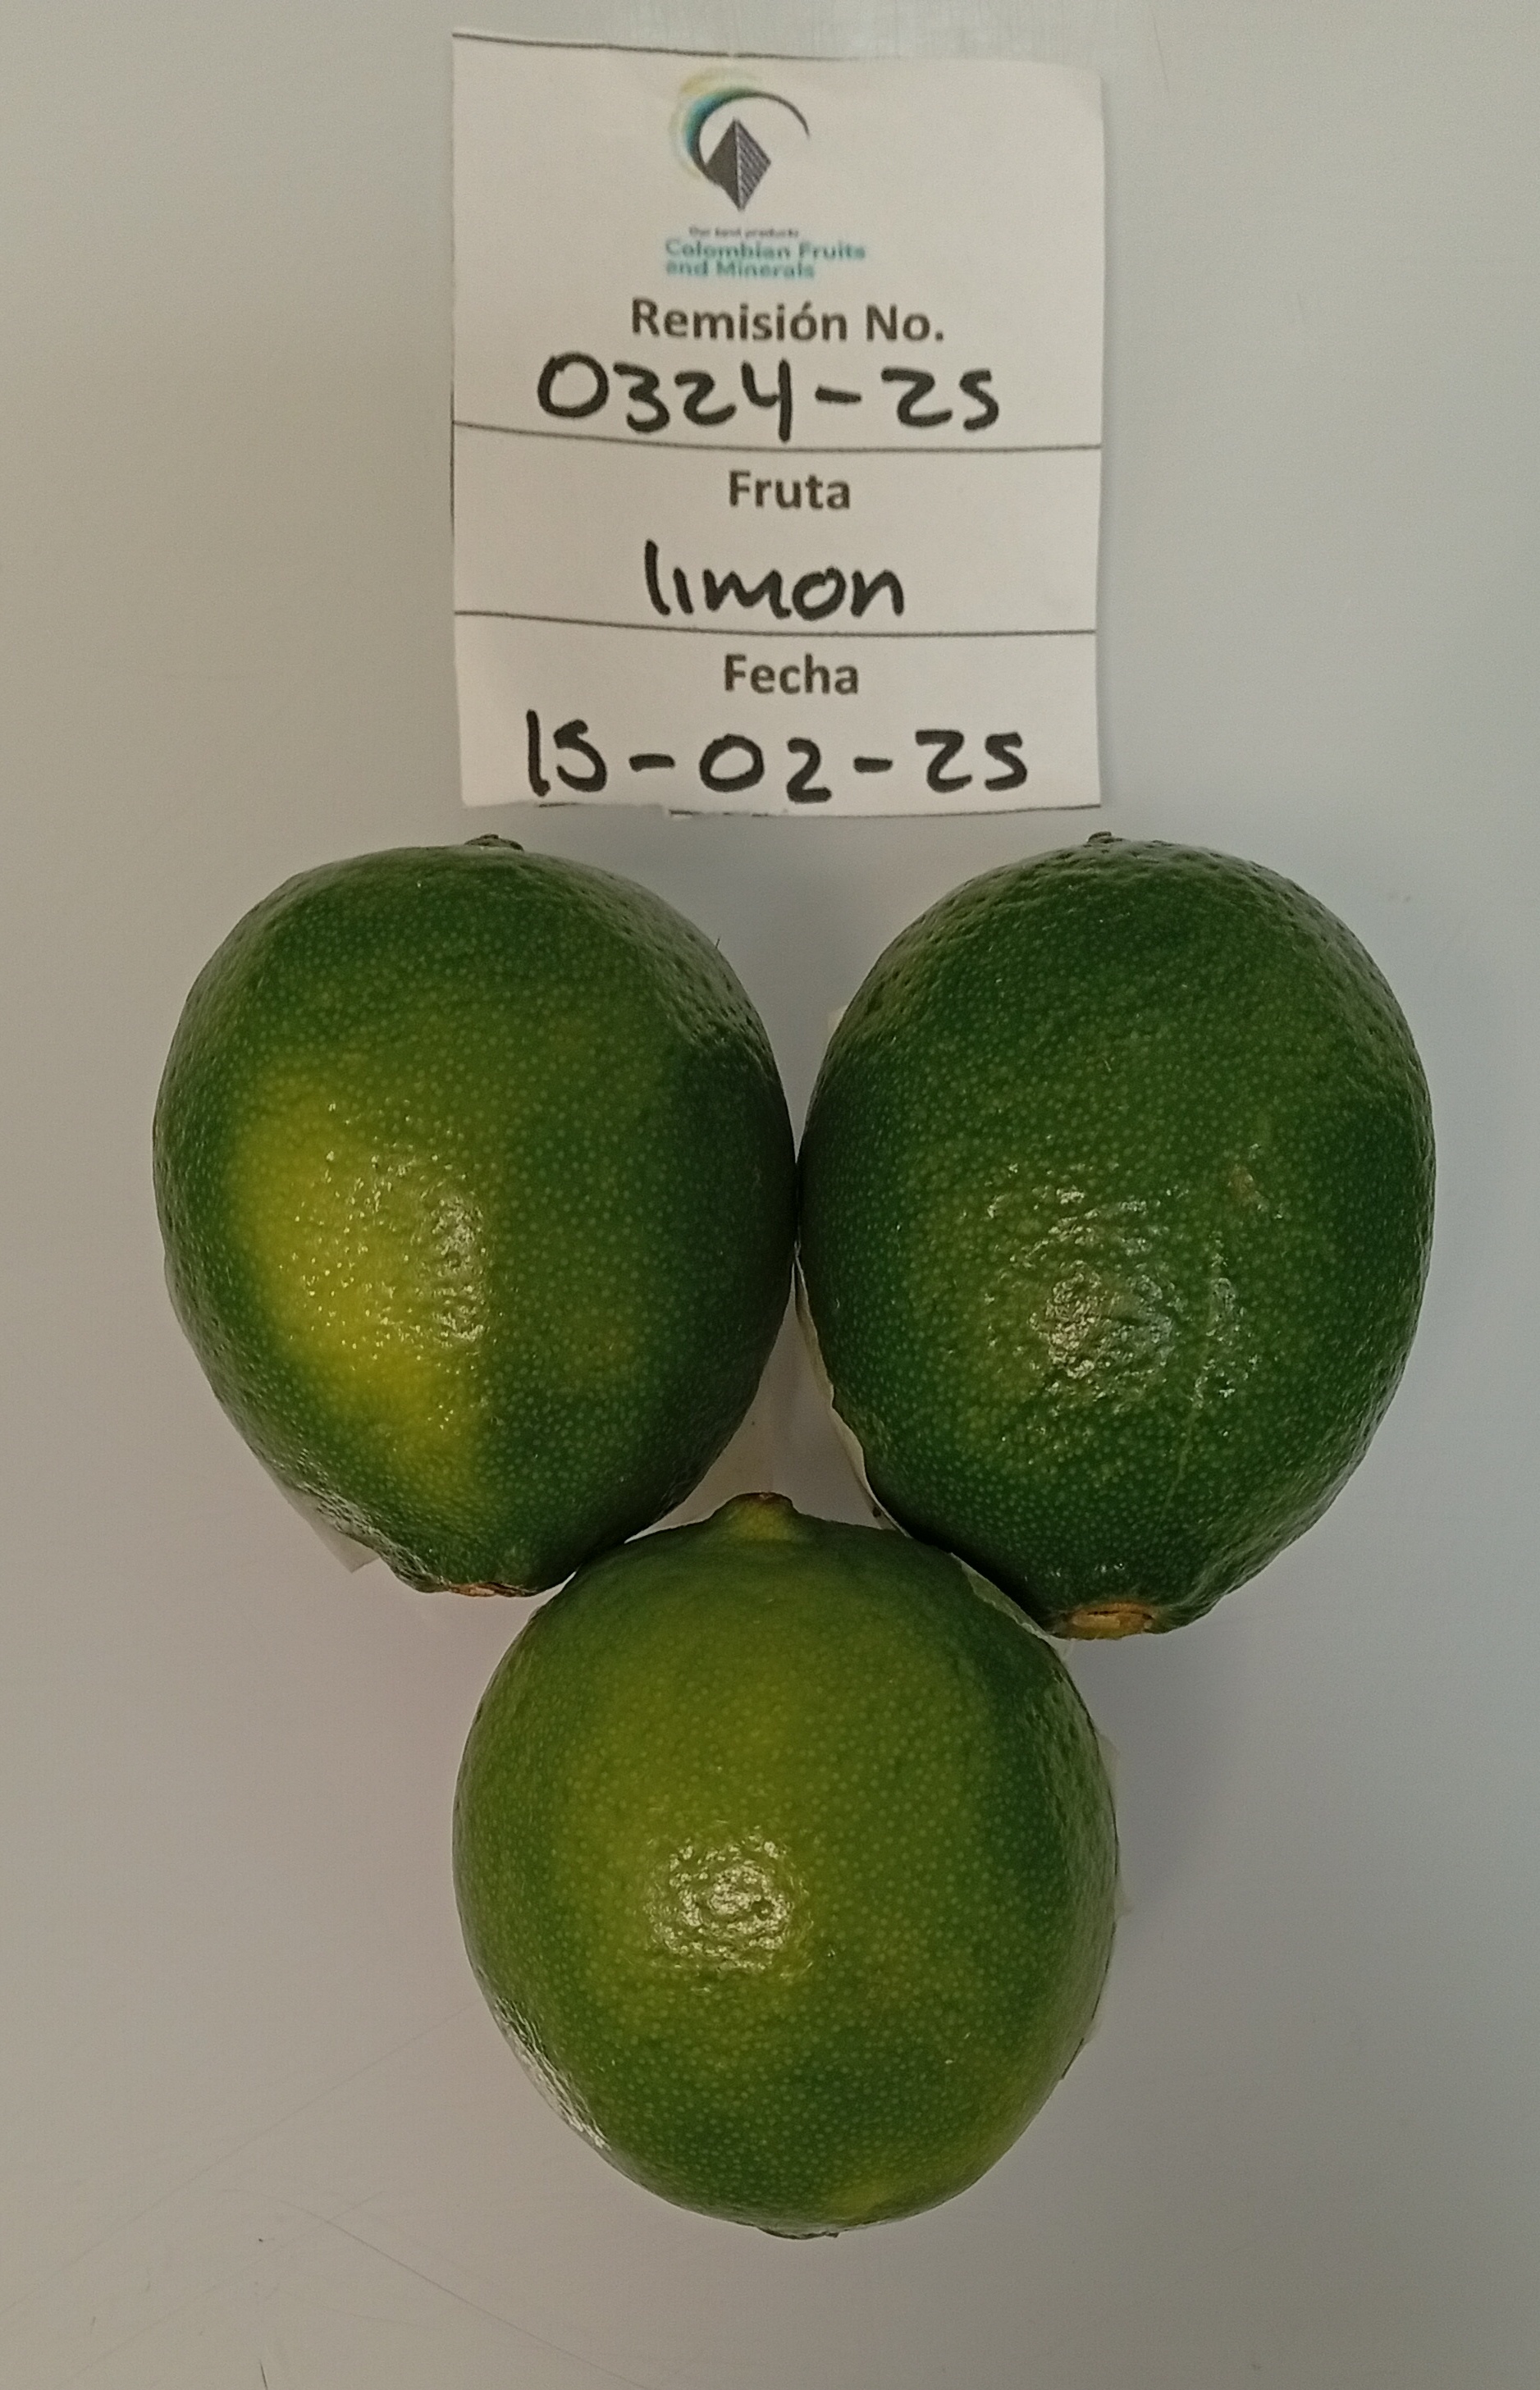 Our best products
Colombian Fruits
and Minerals
Remisión No.
0324-25
Fruta
limon
Fecha
15-02-25